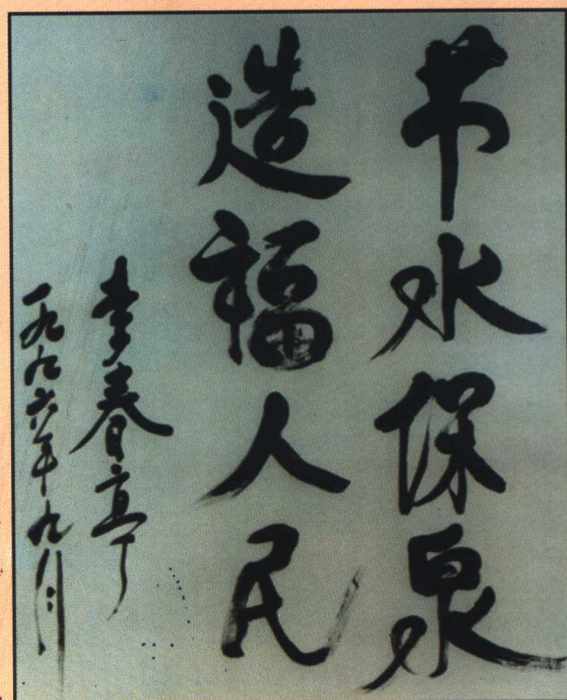 节水保泉
造福人民
李春亭
一九九六年九月